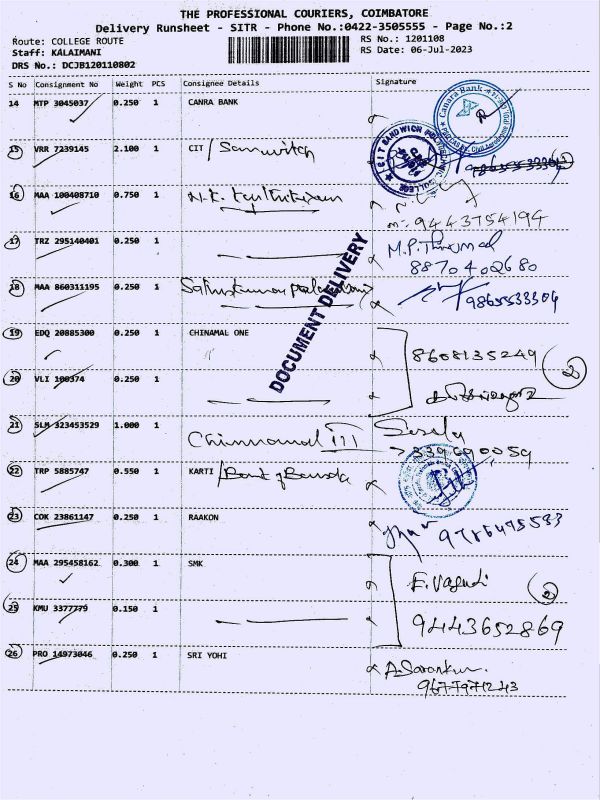 THE PROFESSIONAL COURIERS, COIMBATORE
Delivery Runsheet - SITR - Phone No.:0422-3505555 - Page No.:2
Route: COLLEGE ROUTE
RS No.: 1201108
Staff: KALAIMANI
RS Date: 06-Jul-2023
DRS No.: DCJB120110802
S No Consignment No Weight PCS Consignee Details Signature
14 MTP 3045037 0.250 1 CANRA BANK
15 VRR 7239145 2.100 1 CIT / Sandwitch
16 MAA 100408710 0.750 1 N.K.
9443754194
17 TRZ 295140401 0.250 1 M.P.Thirumal
8870402680
18 MAA 860311195 0.250 1
9865533304
DOCUMENT DELIVERY
19 EDQ 20885300 0.250 1 CHINAMAL ONE 8608135249
2
20 VLI 100374 0.250 1
21 SLM 323453529 1.000 1 Chinnamal III
22 TRP 5885747 0.550 1 KARTI / Bank of Baroda
23 COK 23861147 0.250 1 RAAKON
24 MAA 295458162 0.300 1 SMK
2
25 KMU 3377779 0.150 1 9443652869
26 PRO 14973046 0.250 1 SRI YOHI